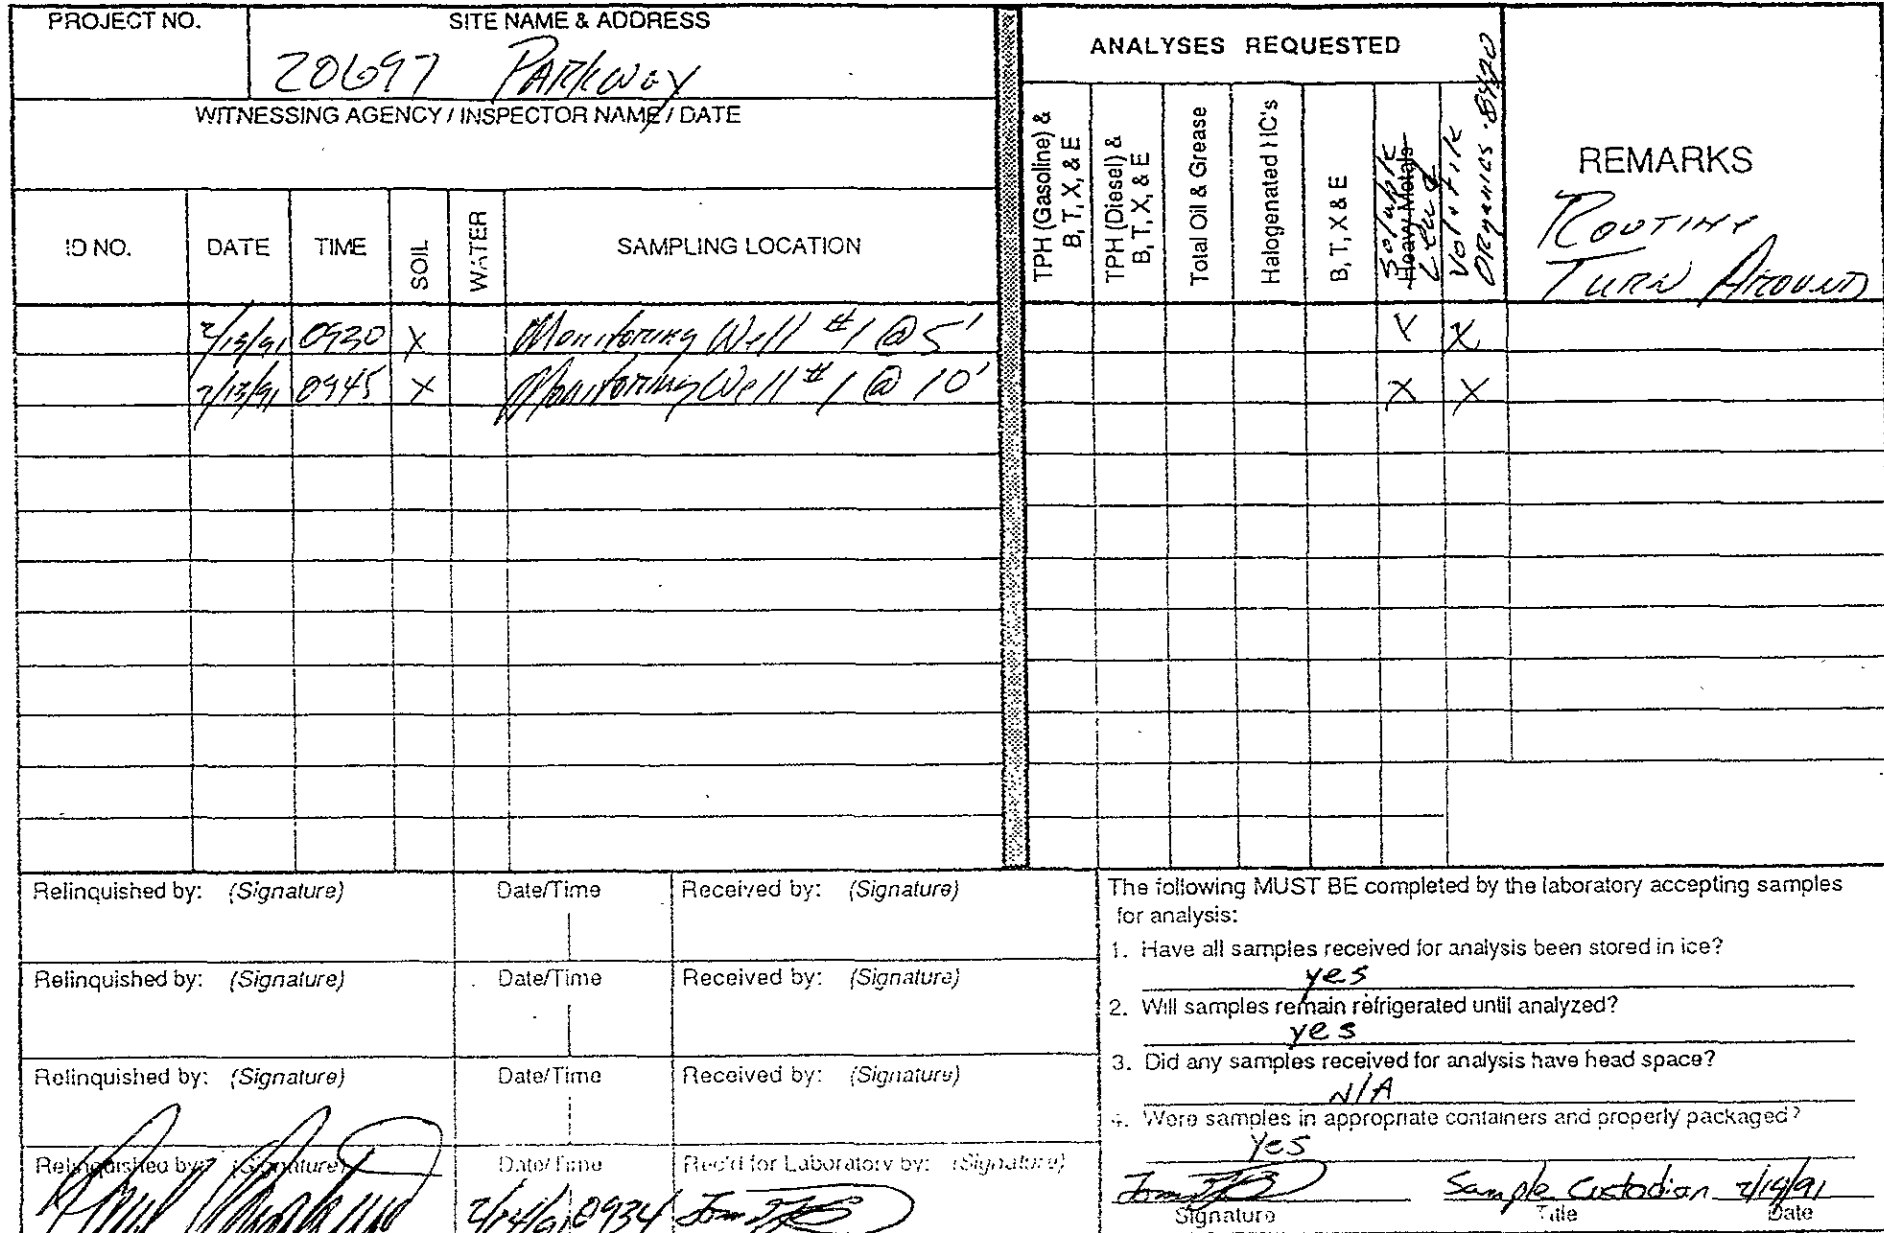 PROJECT NO.
SITE NAME & ADDRESS
20697 PARKWAY
WITNESSING AGENCY / INSPECTOR NAME / DATE
ANALYSES REQUESTED
TPH (Gasoline) & B, T, X, & E
TPH (Diesel) & B, T, X, & E
Total Oil & Grease
Halogenated HC's
B, T, X & E
Heavy Metals
Soluble Lead
Volatile Organics
REMARKS
ROUTINE
TURN AROUND
ID NO. DATE TIME SOIL WATER SAMPLING LOCATION
2/13/91 0930 X Monitoring Well #1 @ 5' X X
2/13/91 0945 X Monitoring Well #1 @ 10' X X
Relinquished by: (Signature) Date/Time Received by: (Signature)
Relinquished by: (Signature) Date/Time Received by: (Signature)
Relinquished by: (Signature) Date/Time Received by: (Signature)
Relinquished by: (Signature) Date/Time Rec'd for Laboratory by: (Signature)
2/14/91 0934
The following MUST BE completed by the laboratory accepting samples
for analysis:
1. Have all samples received for analysis been stored in ice?
yes
2. Will samples remain refrigerated until analyzed?
yes
3. Did any samples received for analysis have head space?
N/A
4. Were samples in appropriate containers and properly packaged?
yes
Sample Custodian 2/14/91
Signature Title Date